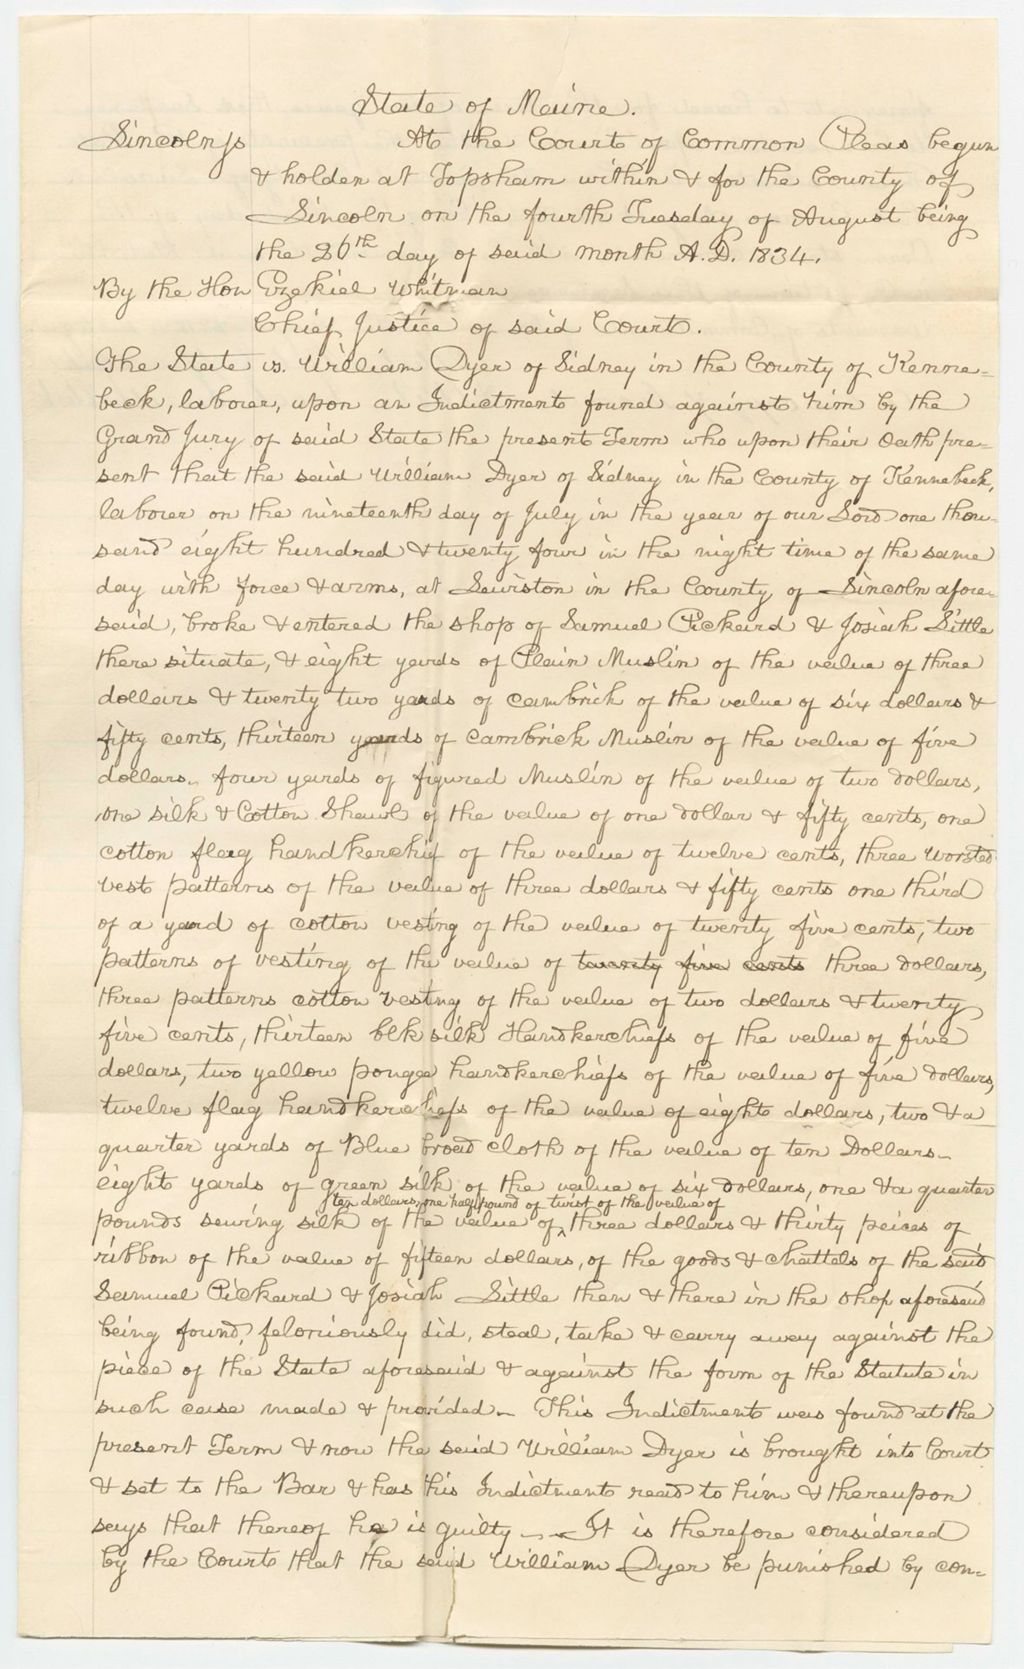 State of Maine.
Lincoln ss
At the Court of Common Pleas begun
& holden at Topsham within & for the County of
Lincoln on the fourth Tuesday of August being
the 26th day of said month A.D. 1834.
By the Hon Ezekiel Whitman
Chief Justice of said Court.
The State vs. William Dyer of Sidney in the County of Kenne=
beck, laborer, upon an Indictment found against him by the
Grand Jury of said State the present Term who upon their Oath pre-
sent that the said William Dyer of Sidney in the County of Kennebeck,
laborer on the nineteenth day of July in the year of our Lord one thou-
sand eight hundred & twenty four in the night time of the same
day with force & arms, at Lewiston in the County of Lincoln afore-
said, broke & entered the shop of Samuel Pickard & Josiah Little
there situate, & eight yards of Plain Muslin of the value of three
dollars & twenty two yards of cambrick of the value of six dollars &
fifty cents, thirteen yards of Cambrick Muslin of the value of five
dollars_ four yards of figured Muslin of the value of two dollars,
one silk & Cotton Shawl of the value of one dollar & fifty cents, one
cotton flag handkerchief of the value of twelve cents, three worsted
vest patterns of the value of three dollars & fifty cents one third
of a yard of cotton vesting of the value of twenty five cents, two
patterns of vesting of the value of twenty five cents three dollars,
three patterns cotton vesting of the value of two dollars & twenty
five cents, thirteen blk silk Handkerchiefs of the value of five
dollars, two yellow ponge handkerchiefs of the value of five dollars,
twelve flag handkerchiefs of the value of eight dollars, two & a
quarter yards of Blue broad cloth of the value of ten Dollars_
eight yards of green silk of the value of six dollars, one & a quarter
ten dollars, one half pound of twist of the value of
pounds sewing silk of the value of ^ three dollars & thirty peices of
ribbon of the value of fifteen dollars, of the goods & chattels of the said
Samuel Pickard & Josiah Little then & there in the shop aforesaid
being found, feloniously did, steal, take & carry away against the
piece of the State aforesaid & against the form of the Statute in
such case made & provided_ This Indictment was found at the
present Term & now the said William Dyer is brought into Court
& set to the Bar & has this Indictment read to him & thereupon
says that thereof he is guilty_ _ It is therefore considered
by the Court that the said William Dyer be punished by con=